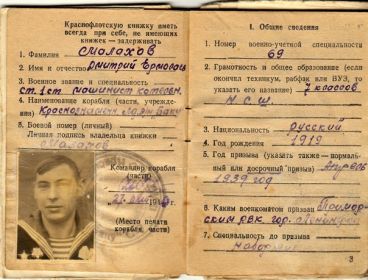 Краснофлотскую книжку иметь
всегда при себе, не имеющих
книжек — задерживать
1. Фамилия Малахов
2. Имя и отчество Дмитрий
3. Военное звание и специальность
ст. 1 ст. машинист котельн.
4. Наименование корабля (части, учреждения)
Баку
5. Боевой номер (личный)
Личная подпись владельца книжки
Малахов
Командир корабля
(части)
(Место печати
корабля (части)
1. Общие сведения
1. Номер военно-учетной специальности
69
2. Грамотность и общее образование (если
окончил техникум, рабфак или ВУЗ, то
указать его название) 7 классов
Н.С.Ш.
3. Национальность русский
4. Год рождения 1919
5. Год призыва (указать также — нормаль-
ный или досрочный призыв) Апрель
1939 год
6. Каким военкоматом призван Примор-
ским РВК гор. Ленинград
7. Специальность до призыва
3